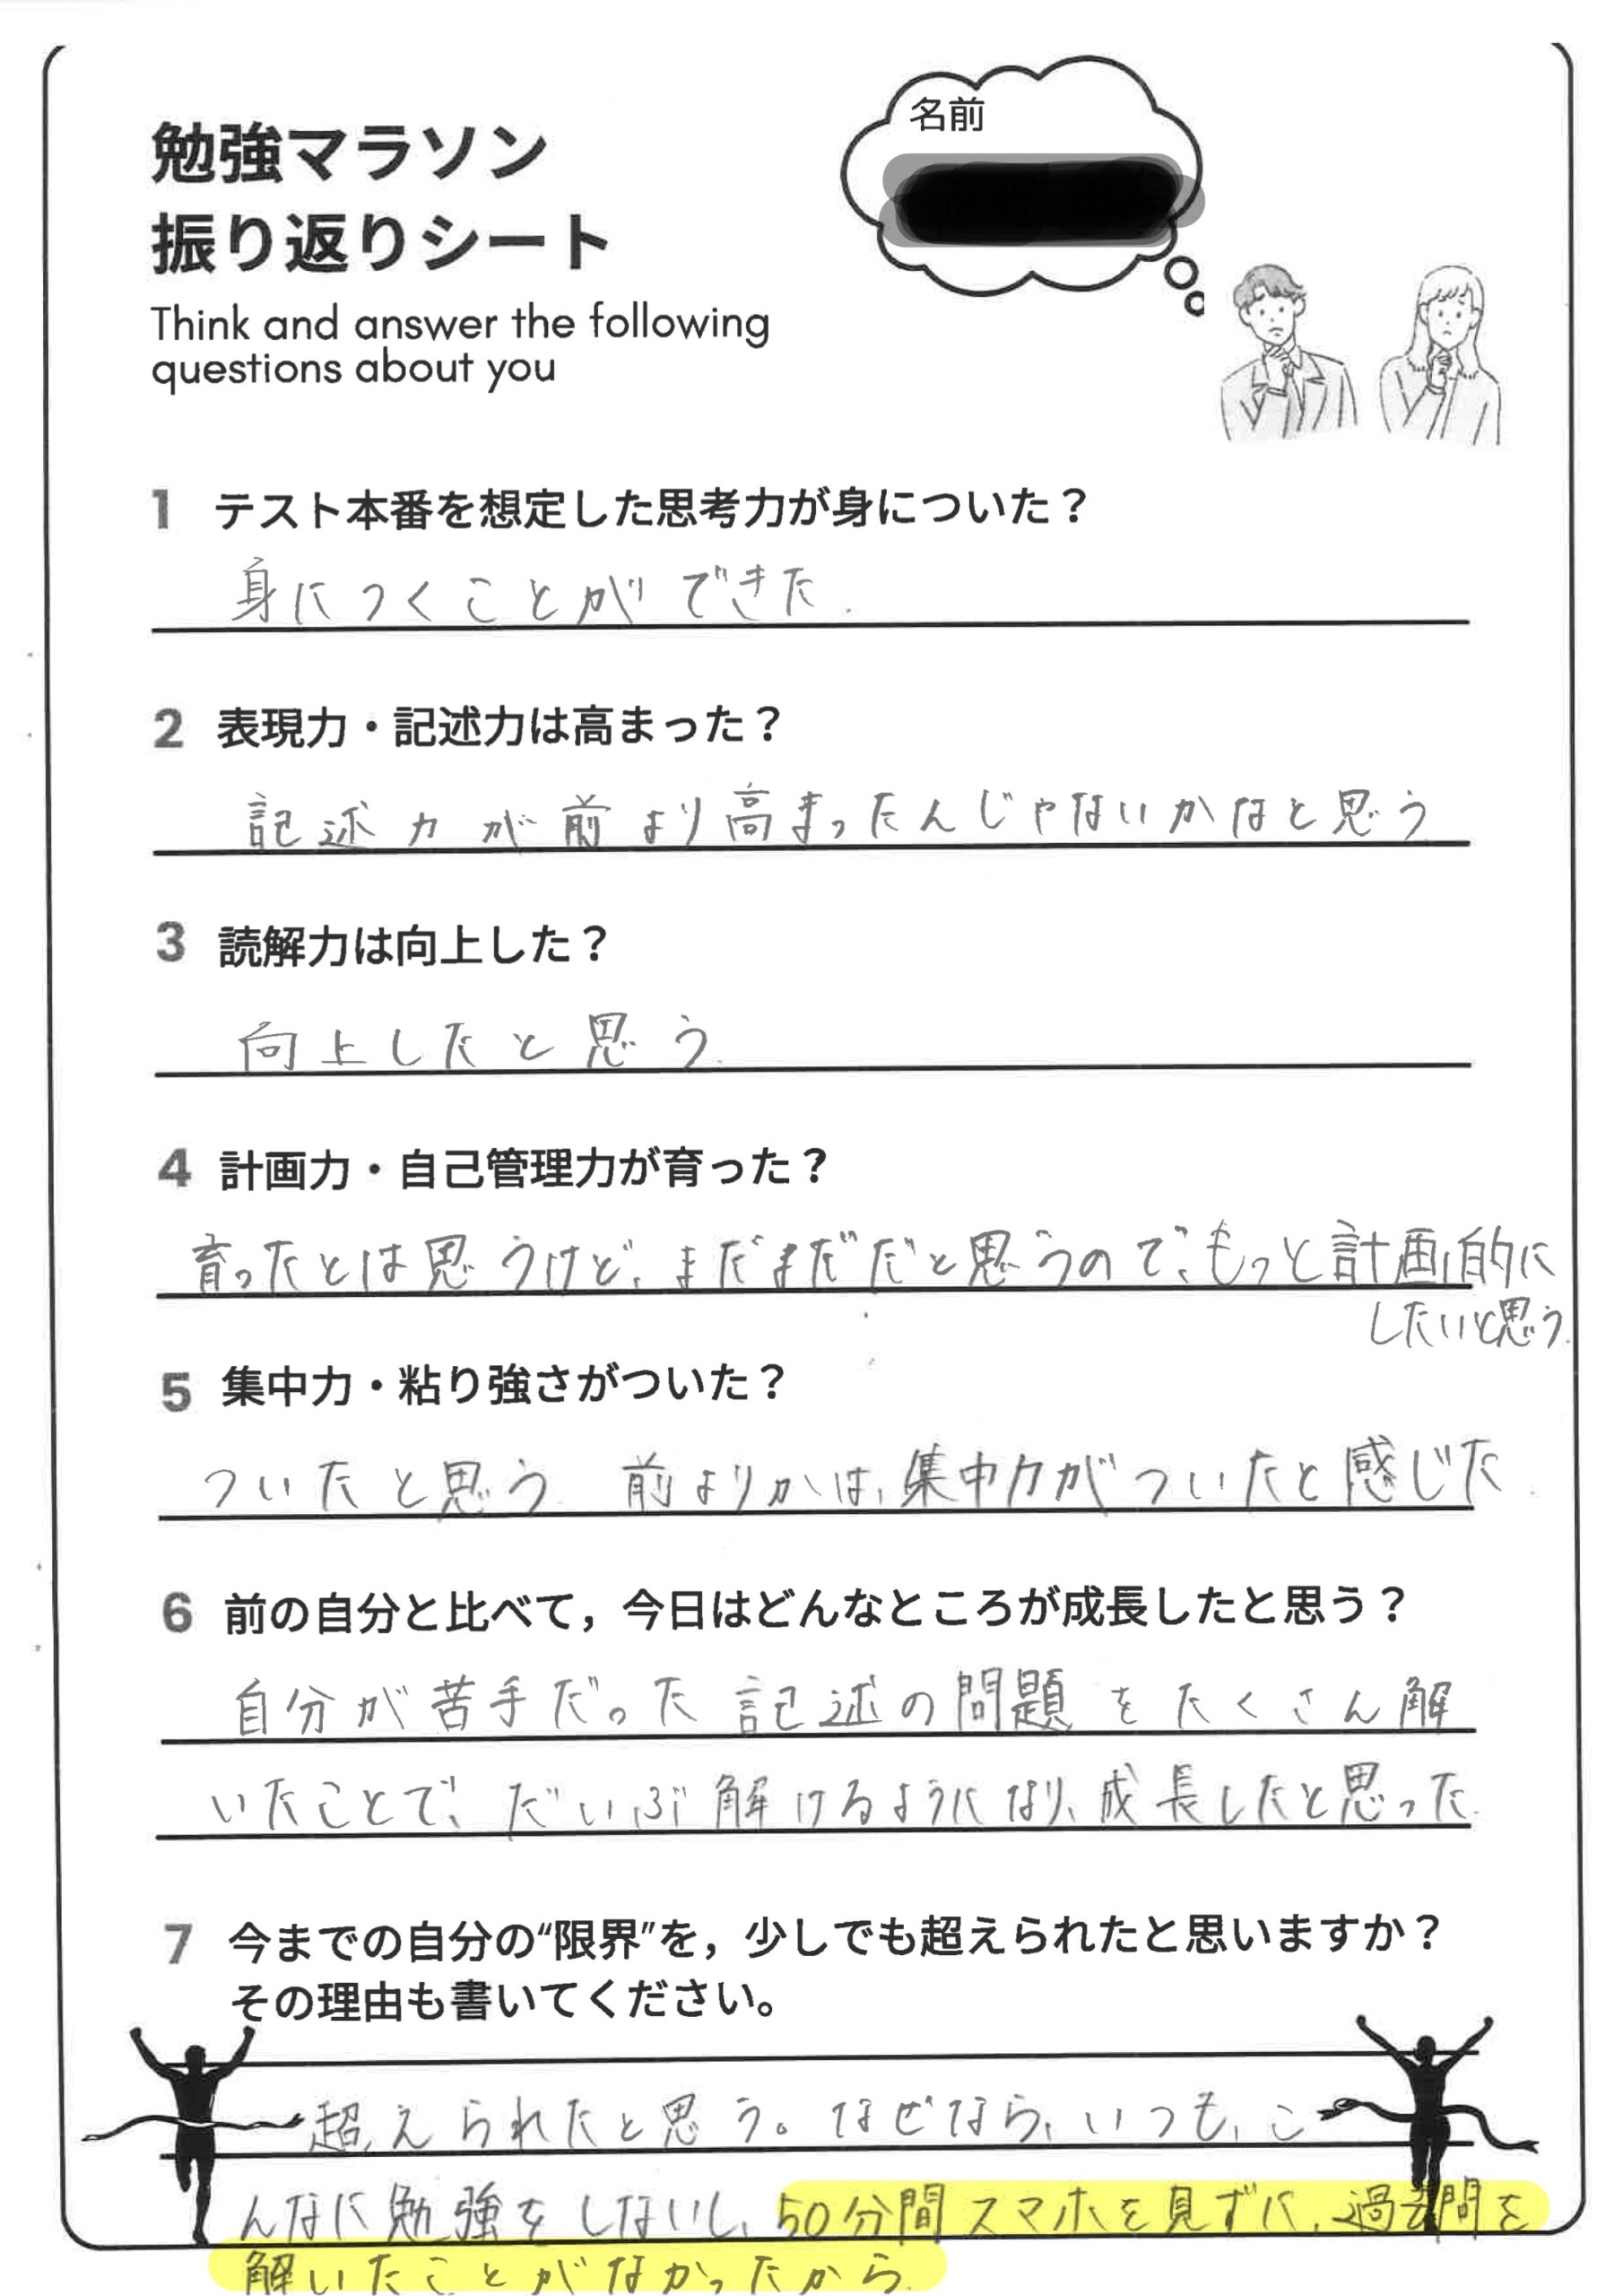 名前
勉強マラソン
振り返りシート
Think and answer the following
questions about you
1 テスト本番を想定した思考力が身についた？
身につくことができた.
2 表現力・記述力は高まった？
記述力が前より高まったんじゃないかなと思う
3 読解力は向上した？
向上したと思う.
4 計画力・自己管理力が育った？
育ったとは思うけど、まだまだだと思うので、もっと計画的に
したいと思う.
5 集中力・粘り強さがついた？
ついたと思う. 前よりかは、集中力がついたと感じた.
6 前の自分と比べて，今日はどんなところが成長したと思う？
自分が苦手だった記述の問題をたくさん解
いたことで、だいぶ解けるようになり、成長したと思った.
7 今までの自分の“限界”を，少しでも超えられたと思いますか？
その理由も書いてください。
超えられたと思う。なぜなら、いつも、こ
んなに勉強をしないし、50分間スマホを見ずに、過去問を
解いたことがなかったから.